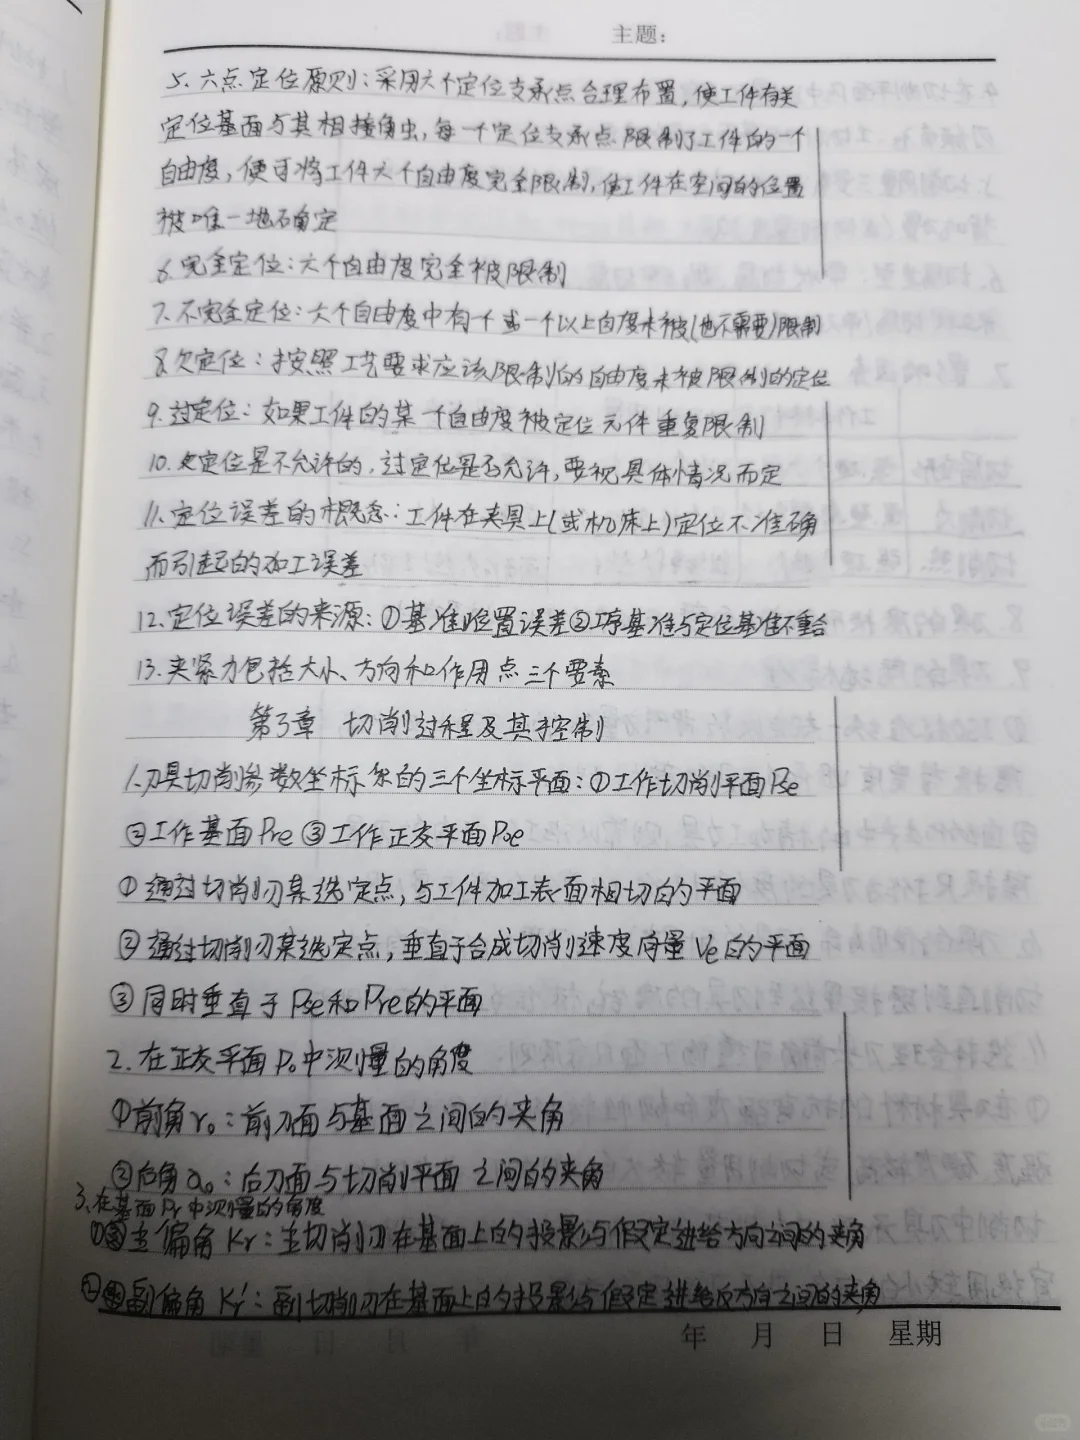 主题:
5. 六点定位原则：采用六个定位支承点合理布置，使工件有关
定位基面与其相接触，每一个定位支承点限制了工件的一个
自由度，便可将工件六个自由度完全限制，使工件在空间的位置
被唯一地确定
6. 完全定位：六个自由度完全被限制
7. 不完全定位：六个自由度中有一个或一个以上自度未被(也不需要)限制
8. 欠定位：按照工艺要求应该限制的自由度未被限制的定位
9. 过定位：如果工件的某一个自由度被定位元件重复限制
10. 欠定位是不允许的，过定位是否允许，要视具体情况而定
11. 定位误差的概念：工件在夹具上(或机床上)定位不准确
而引起的加工误差
12. 定位误差的来源：①基准位置误差②工序基准与定位基准不重合
13. 夹紧力包括大小、方向和作用点三个要素
第3章 切削过程及其控制
1. 刀具切削参数坐标系的三个坐标平面：①工作切削平面Pse
②工作基面Pre ③工作正交平面Poe
①通过切削刃某选定点，与工件加工表面相切的平面
②通过切削刃某选定点，垂直于合成切削速度向量Ve的平面
③同时垂直于Pse和Pre的平面
2. 在正交平面Po中测量的角度
①前角γo：前刀面与基面之间的夹角
②后角αo：后刀面与切削平面之间的夹角
3. 在基面Pr中测量的角度
①主偏角Kr：主切削刃在基面上的投影与假定进给方向之间的夹角
②副偏角Kr′：副切削刃在基面上的投影与假定进给反方向之间的夹角
年 月 日 星期